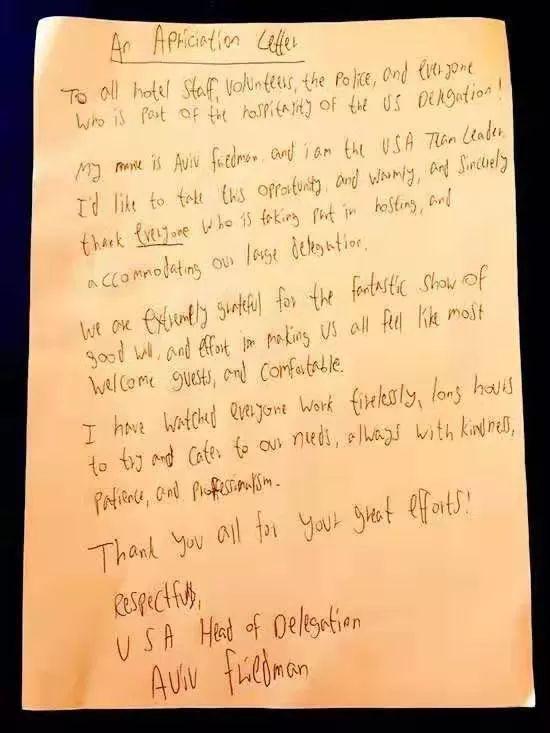 An Apriciation Letter
To all hotel staff, volunteers, the police, and everyone
who is part of the hospitality of the US Delegation!
My name is Aviv friedman. and i am the USA Team Leader.
I'd like to take this opportunity, and warmly, and sincerely
thank everyone who is taking part in hosting, and
accommodating our large delegation.
We are extremely grateful for the fantastic show of
good will, and effort in making us all feel like most
welcome guests, and comfortable.
I have watched everyone work tirelessly, long hours
to try and cater to our needs, always with kindness,
patience, and proffessinalism.
Thank you all for your great efforts!
Respectfuly,
USA Head of Delegation
Aviv friedman